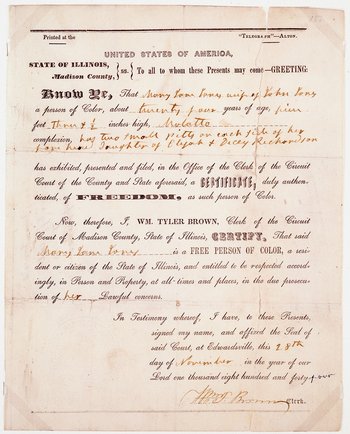 Printed at the "TELEGRAPH"—ALTON.
UNITED STATES OF AMERICA,
STATE OF ILLINOIS, } ss. { To all to whom these Presents may come—GREETING:
Madison County,
Know Ye, That Mary Jane Jones, wife of John Jones
a person of Color, about twenty four years of age, five
feet Three & ½ inches high, Molatto
complexion, has two small pitts on each side of her
face near Daughter of Elijah & Dicey Richardson
has exhibited, presented and filed, in the Office of the Clerk of the Circuit
Court of the County and State aforesaid, a CERTIFICATE, duly authen-
ticated, of FREEDOM, as such person of Color.
Now, therefore, I, WM. TYLER BROWN, Clerk of the Circuit
Court of Madison County, State of Illinois, CERTIFY, That said
Mary Jane Jones is a FREE PERSON OF COLOR, a resi-
dent or citizen of the State of Illinois, and entitled to be respected accord-
ingly, in Person and Property, at all-times and places, in the due prosecu-
tion of her Lawful concerns.
In Testimony whereof, I have, to these Presents,
signed my name, and affixed the Seal of
said Court, at Edwardsville, this 28th
day of November in the year of our
Lord one thousand eight hundred and forty-four
Wm T Brown Clerk.